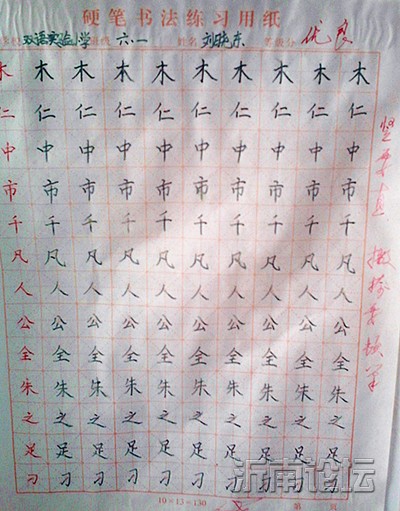 硬笔书法练习用纸
双语实验小学 班级 六·一 姓名 刘晓东 等级分 优良
木 木 木 木 木 木 木 木 木
仁 仁 仁 仁 仁 仁 仁 仁 仁
中 中 中 中 中 中 中 中 中
市 市 市 市 市 市 市 市 市
千 千 千 千 千 千 千 千 千
凡 凡 凡 凡 凡 凡 凡 凡 凡
人 人 人 人 人 人 人 人 人
公 公 公 公 公 公 公 公 公
全 全 全 全 全 全 全 全 全
朱 朱 朱 朱 朱 朱 朱 朱 朱
之 之 之 之 之 之 之 之 之
足 足 足 足 足 足 足 足 足
刁 刁 刁 刁 刁 刁 刁 刁 刁
竖要直 撇捺要
10×13=130
第 页
沂南论坛